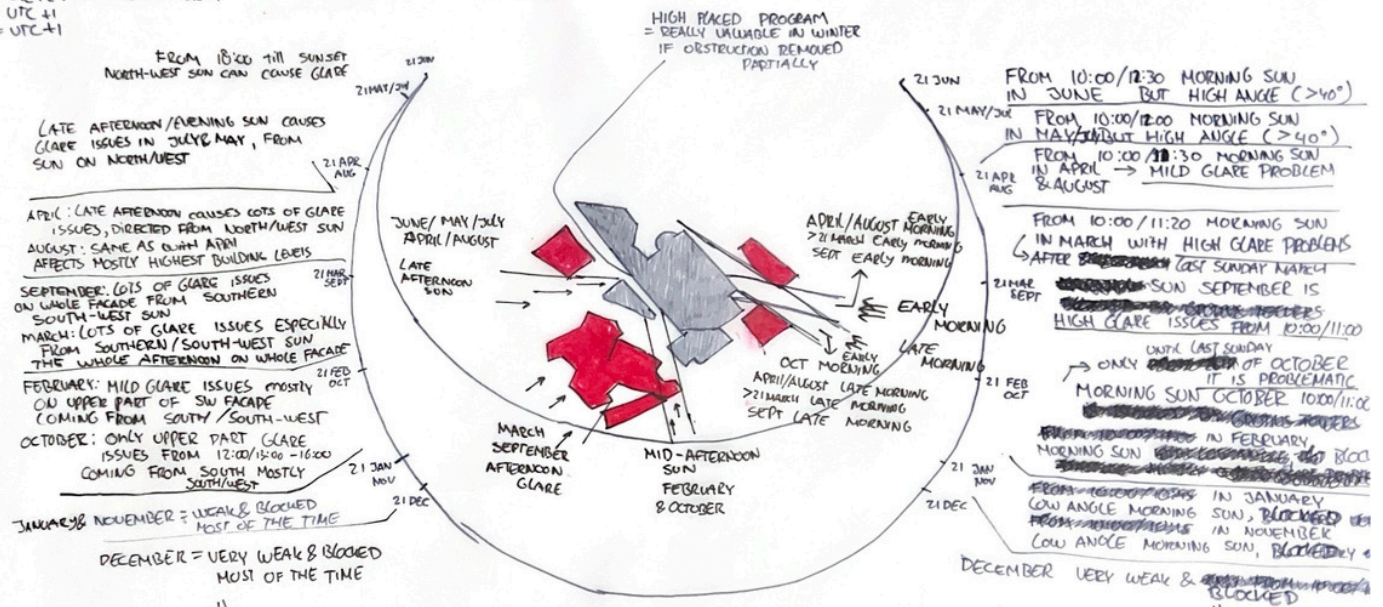 UTC +1
= UTC +1
HIGH PLACED PROGRAM
= REALLY VALUABLE IN WINTER
IF OBSTRUCTION REMOVED
PARTIALLY
FROM 18:00 TILL SUNSET
NORTH-WEST SUN CAN CAUSE GLARE
LATE AFTERNOON/EVENING SUN CAUSES
GLARE ISSUES IN JULY & MAY, FROM
SUN ON NORTH/WEST
APRIL: LATE AFTERNOON CAUSES LOTS OF GLARE
ISSUES, DIRECTED FROM NORTH/WEST SUN
AUGUST: SAME AS WITH APRI
AFFECTS MOSTLY HIGHEST BUILDING LEVELS
SEPTEMBER: LOTS OF GLARE ISSUES
ON WHOLE FACADE FROM SOUTHERN
SOUTH-WEST SUN
MARCH: LOTS OF GLARE ISSUES ESPECIALLY
FROM SOUTHERN/SOUTH-WEST SUN
THE WHOLE AFTERNOON ON WHOLE FACADE
FEBRUARY: MILD GLARE ISSUES MOSTLY
ON UPPER PART OF SW FACADE
COMING FROM SOUTH/SOUTH-WEST
OCTOBER: ONLY UPPER PART GLARE
ISSUES FROM 12:00/13:00 - 16:00
COMING FROM SOUTH MOSTLY
SOUTH/WEST
JANUARY & NOVEMBER = WEAK & BLOCKED
MOST OF THE TIME
DECEMBER = VERY WEAK & BLOCKED
MOST OF THE TIME
21 JUN
21 MAY/JUL
21 APR
AUG
21 MAR
SEPT
21 FEB
OCT
21 JAN
NOV
21 DEC
JUNE/MAY/JULY
APRIL/AUGUST
LATE
AFTERNOON
SUN
MARCH
SEPTEMBER
AFTERNOON
GLARE
MID-AFTERNOON
SUN
FEBRUARY
& OCTOBER
APRIL/AUGUST EARLY MORNING
>21 MARCH EARLY MORNING
SEPT EARLY MORNING
EARLY
MORNING
LATE
MORNING
EARLY
OCT MORNING
APRIL/AUGUST LATE MORNING
>21 MARCH LATE MORNING
SEPT LATE MORNING
21 JUN
21 MAY/JUL
21 APR
AUG
21 MAR
SEPT
21 FEB
OCT
21 JAN
NOV
21 DEC
FROM 10:00/12:30 MORNING SUN
IN JUNE BUT HIGH ANGLE (>40°)
FROM 10:00/12:00 MORNING SUN
IN MAY/JUL BUT HIGH ANGLE (>40°)
FROM 10:00/11:30 MORNING SUN
IN APRIL → MILD GLARE PROBLEM
& AUGUST
FROM 10:00/11:20 MORNING SUN
IN MARCH WITH HIGH GLARE PROBLEMS
→ AFTER LAST SUNDAY MARCH
SUN SEPTEMBER IS
HIGH GLARE ISSUES FROM 10:00/11:00
UNTIL LAST SUNDAY
→ ONLY OF OCTOBER
IT IS PROBLEMATIC
MORNING SUN OCTOBER 10:00/11:00
IN FEBRUARY
MORNING SUN BLOC
IN JANUARY
LOW ANGLE MORNING SUN, BLOCKED
IN NOVEMBER
LOW ANGLE MORNING SUN, BLOCKED
DECEMBER VERY WEAK &
BLOCKED